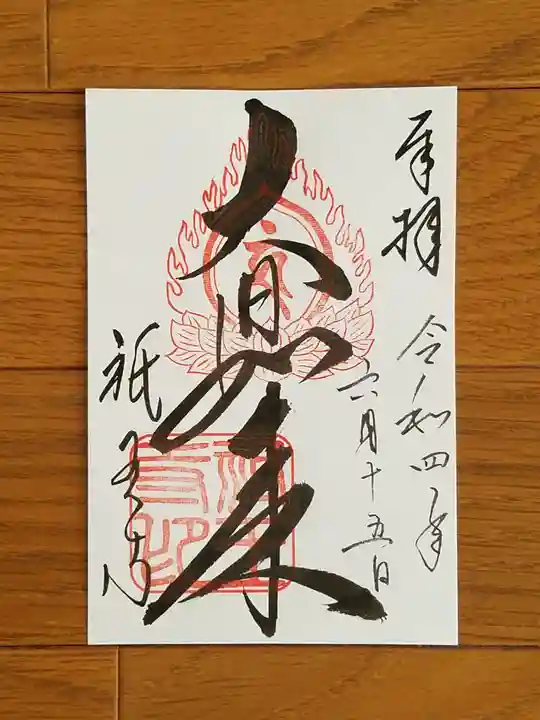 奉拝
令和四年
六月十五日
大日如来